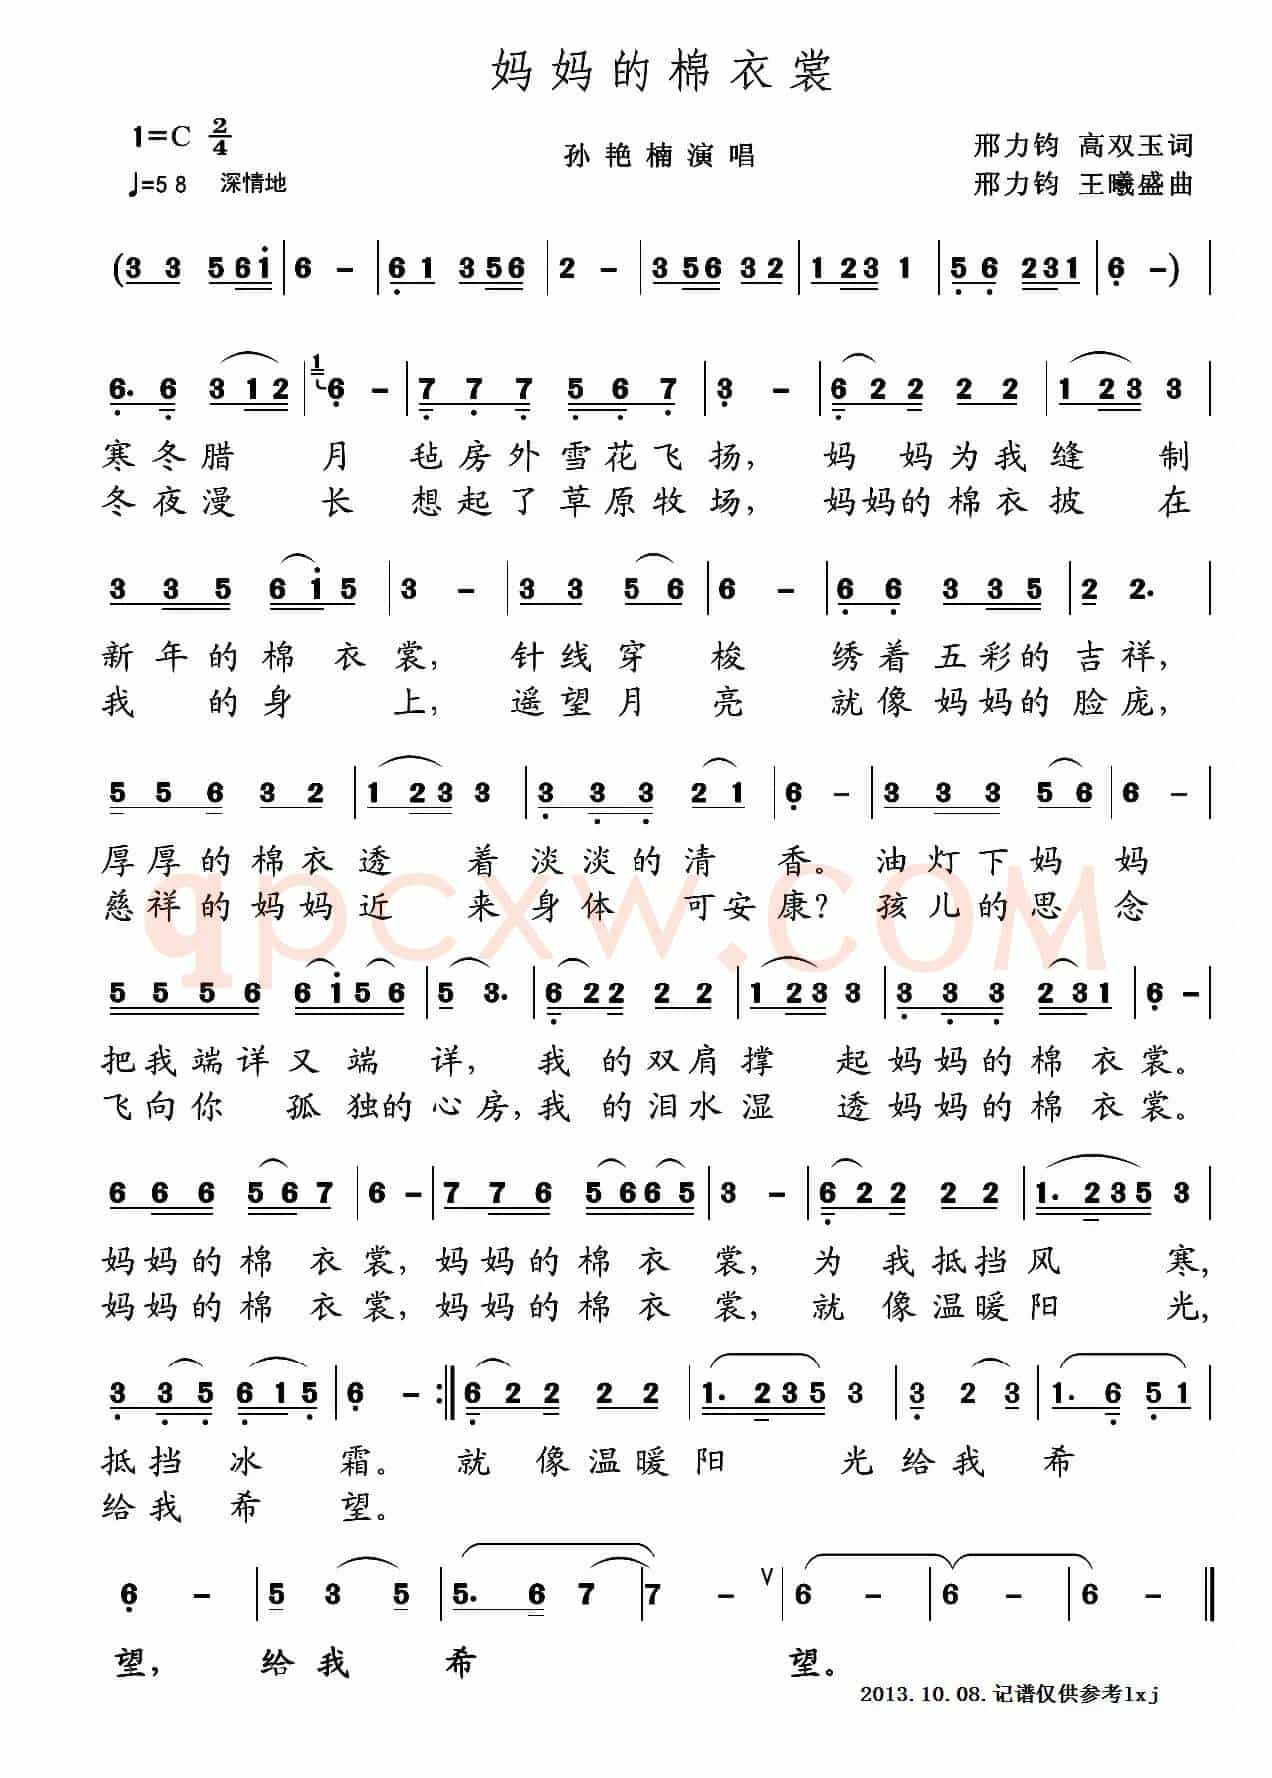 妈妈的棉衣裳
1=C 2/4
孙艳楠演唱
邢力钧 高双玉词
♩=58 深情地
邢力钧 王曦盛曲
(3 3 5 6 i | 6 - | 6 1 3 5 6 | 2 - | 3 5 6 3 2 | 1 2 3 1 | 5 6 2 3 1 | 6 -) |
6. 6 3 1 2 | 1 6 - | 7 7 7 5 6 7 | 3 - | 6 2 2 2 2 | 1 2 3 3 |
寒冬腊月毡房外雪花飞扬，妈妈为我缝制
冬夜漫长想起了草原牧场，妈妈的棉衣披在
3 3 5 6 i 5 | 3 - | 3 3 5 6 | 6 - | 6 6 3 3 5 | 2 2. |
新年的棉衣裳，针线穿梭绣着五彩的吉祥，
我的身上，遥望月亮就像妈妈的脸庞，
5 5 6 3 2 | 1 2 3 3 | 3 3 3 2 1 | 6 - | 3 3 3 5 6 | 6 - |
厚厚的棉衣透着淡淡的清香。油灯下妈妈
慈祥的妈妈近来身体可安康？孩儿的思念
qpcxw.COM
5 5 5 6 6 i 5 6 | 5 3. | 6 2 2 2 2 | 1 2 3 3 | 3 3 3 2 3 1 | 6 - |
把我端详又端详，我的双肩撑起妈妈的棉衣裳。
飞向你孤独的心房，我的泪水湿透妈妈的棉衣裳。
6 6 6 5 6 7 | 6 - | 7 7 6 5 6 6 5 | 3 - | 6 2 2 2 2 | 1. 2 3 5 3 |
妈妈的棉衣裳，妈妈的棉衣裳，为我抵挡风寒，
妈妈的棉衣裳，妈妈的棉衣裳，就像温暖阳光，
3 3 5 6 1 5 | 6 - :| 6 2 2 2 2 | 1. 2 3 5 3 | 3 2 3 | 1. 6 5 1 |
抵挡冰霜。就像温暖阳光给我希
给我希望。
6 - | 5 3 5 | 5. 6 7 | 7 - V | 6 - | 6 - | 6 - ||
望，给我希望。
2013.10.08.记谱仅供参考lxj